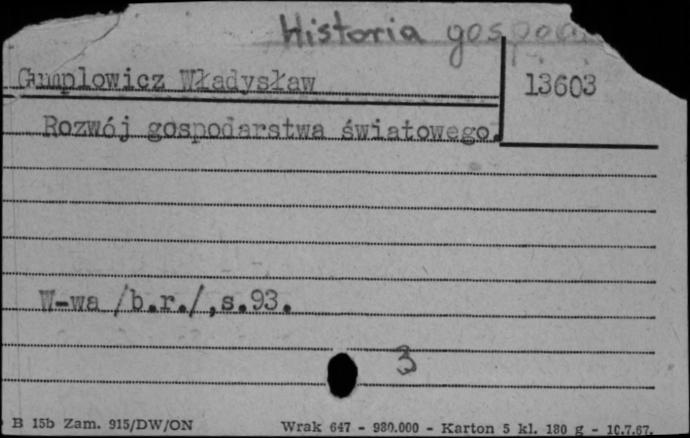 Historia
Gumplowicz Władysław
13603
Rozwój gospodarstwa światowego.
W-wa /b.r./,s.93.
3
B 15b Zam. 915/DW/ON
Wrak 647 - 980.000 - Karton 5 kl. 180 g - 10.7.67.